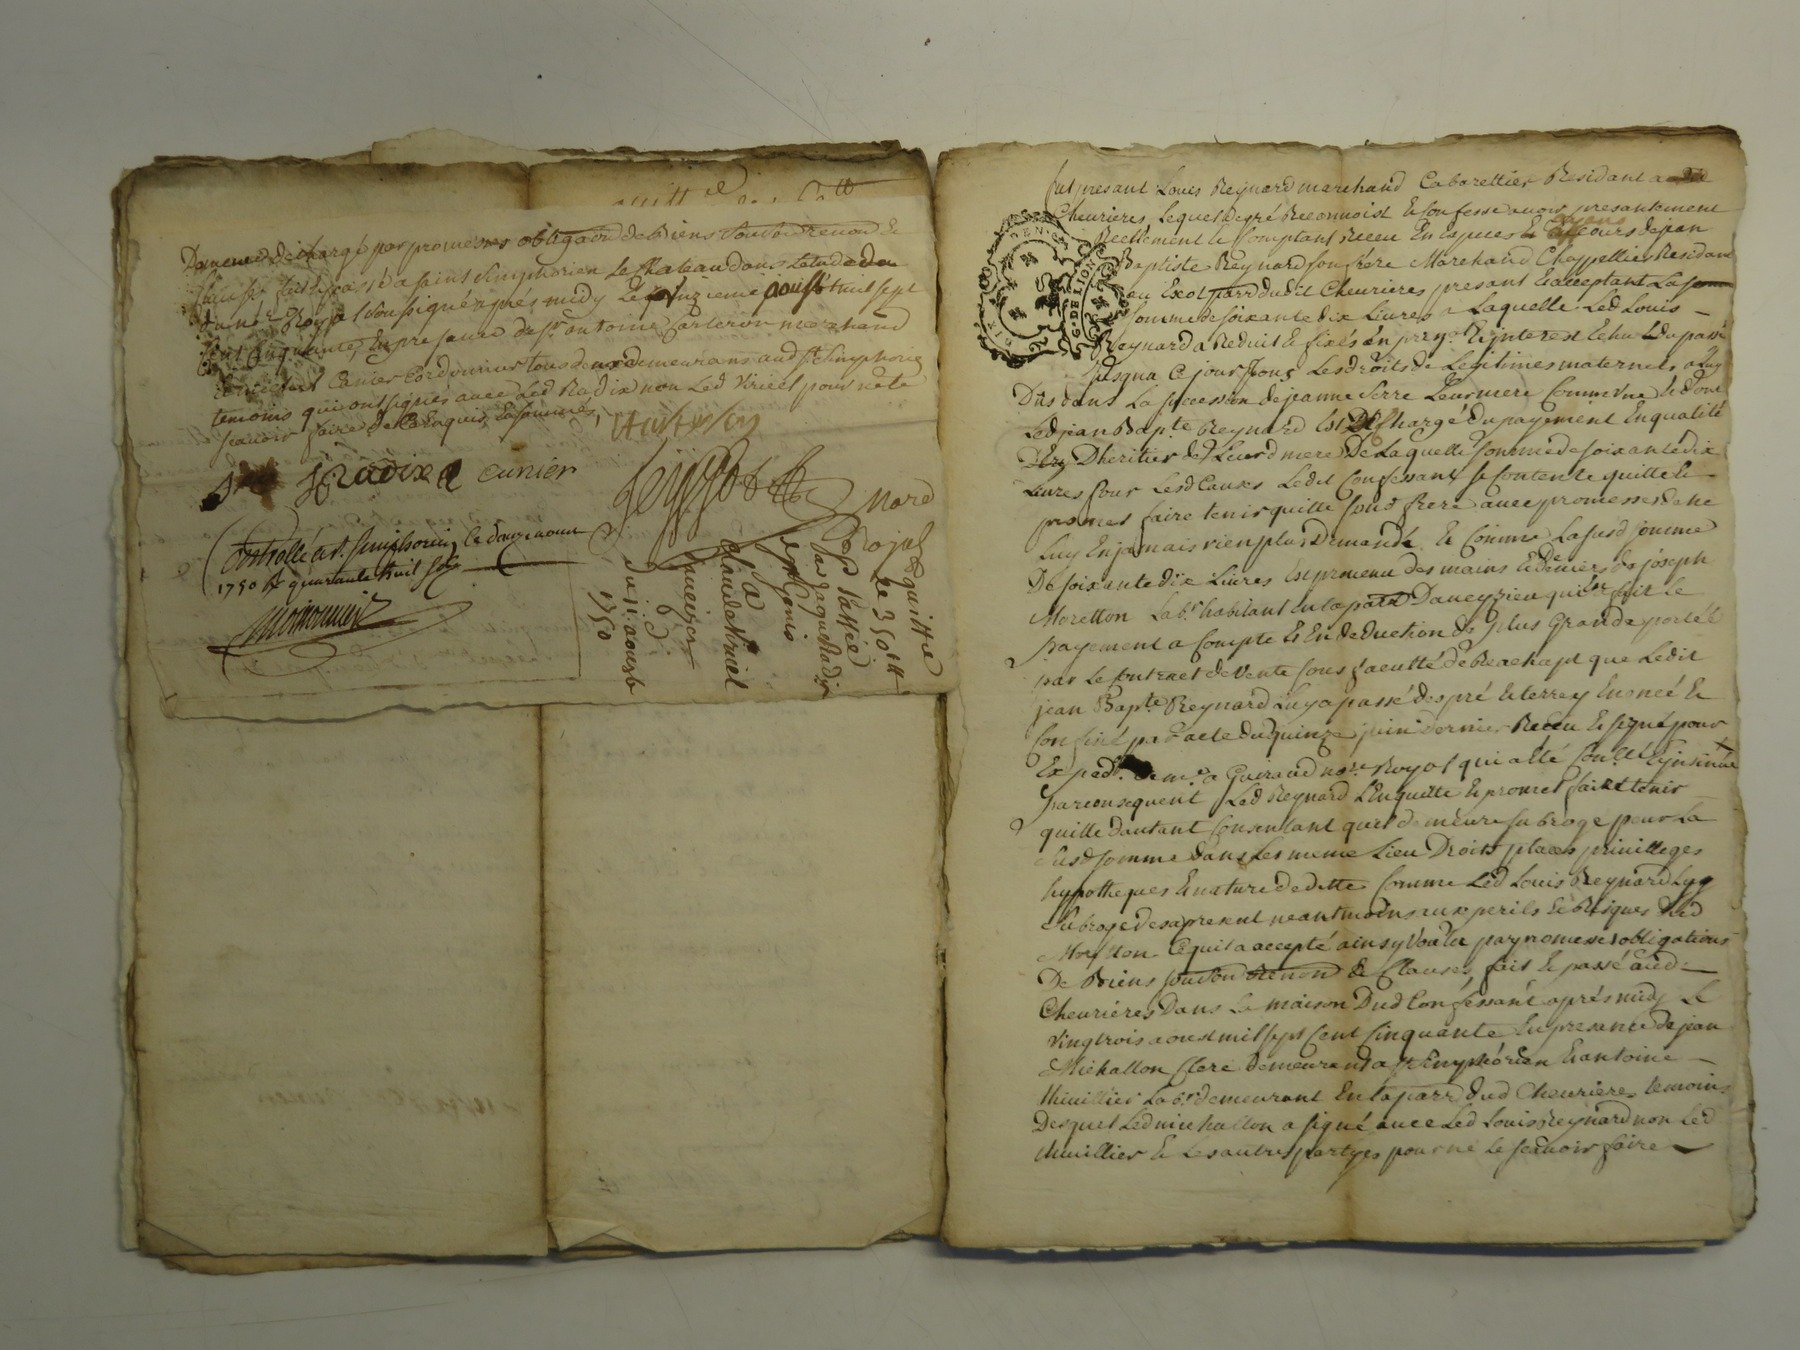 Demeure dechargé par promesses obligaõn de Biens Renon &
Clauses, fait & passé a saint Simphorien Le Chateau dans L'etude du
dit no.re Royal soussigné aprés midy Le onzieme aoust mil sept
Cent Cinquante, En presence de sr. antoine Carteron marchand
Cunier Cordonnier tous deux demeurans aud St. Simphorien
temoins qui ont signés avec Led Radix non Led Viriect pour ne le
sçavoir faire de Ce Enquis,
Radix Cunier
Nore
Royal
Controllé a St. Simphorien Le douze aoust
1750 R quarante huit sols
quittance
de 350 tt
Passée
Par Jaques Radix
a
Claude Viriect
Du 11. aoust
1750
G. DE LION
fut presant Louis Reynard marchand Cabarettier Residant a
Chevrieres, Lequel de gré Reconnoist & Confesse avoir presantement
Reellement & Comptant Receu En Especes de Cours de jean
Baptiste Reynard son frere Marchand Chappellier Residant
au parr dudit Chevrieres presant & acceptant La
somme de soixante dix Livres a Laquelle Led Louis
Reynard a Reduit & fixés én prin.l & interest Echu du passé
jusqua Ce jour Tous Les droits de Legitimes maternels a Luy
Dus dans La succession de jeanne Serre Leur mere Comme & dont
Led jean Bap.te Reynard Est Chargé du payement En qualité
D'heritier de Leurd mere De Laquelle somme de soixante dix
Livres pour Lesd Causes Ledit Confessant se Contente quitte &
promet faire tenir quitte sond frere avec promesses de ne
Luy En jamais rien plus Demande. & Comme La susd somme
De soixante dix Livres Est provenu des mains & deniers de joseph
Moretton Lab.r habitant en La parr D'aveyzieu qui En fait Le
payement a Compte & En deduction de plus Grande portéé
par Le Contract de Vente sous facultté de Reachapt que Ledit
jean Bap.te Reynard Luy a passé des pré & terre y Enoncé &
Confiné par acte du quinze juin dernier Receu & signé pour
Exped. de me. a Guiraud no.re Royal qui a eté Con.llé & insinué
par consequent Led Reynard L'En quitte & promet faire tenir
quitte dautant Consentant quil demeure subroge pour La
susd somme dans Les meme Lieu Droits places privilleges
hypotheques & nature de dette Comme Led Louis Reynard Ly
subroge des apresent neantmoins aux perils & Risques dud
Moretton Ce quil a accepté ainsy Voulu par promesses obligations
De Biens Renon & Clauses, fait & passé aud.
Chevrieres Dans La maison Dud Confessant aprés midy Le
vingtrois aoust mil sept Cent Cinquante En presence de jean
Michallon Clerc demeurant a St. Simphorien & antoine
thivillier Lab.r demeurant En La parr dud Chevrieres temoins
Desquel Led michallon a signé avec Led Louis Reynard non Led
thivillier & Les autres partyes pour ne Le sçavoir faire